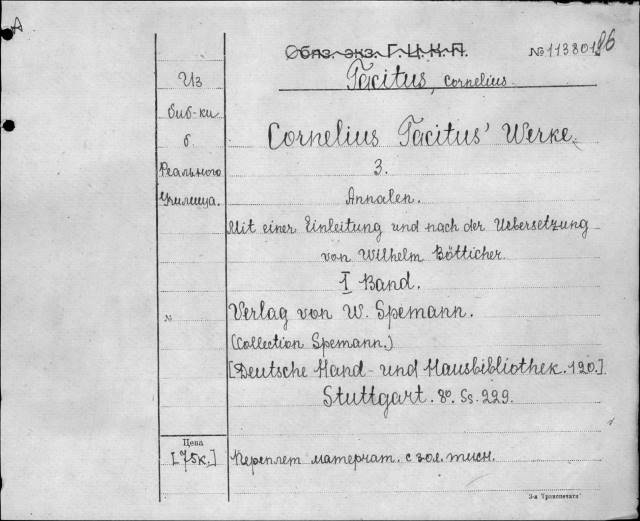 А
Обяз. экз. Г.Ц.К.П.
№ 11380186
Из
биб-ки
б.
Реального
Училища.
Tacitus, Cornelius.
Cornelius Tacitus' Werke.
3.
Annalen.
Mit einer Einleitung und nach der Uebersetzung
von Wilhelm Bötticher.
I Band.
№
Verlag von W. Spemann.
(Collection Spemann.)
[Deutsche Hand- und Hausbibliothek. 120.].
Stuttgart. 8º. Ss. 229.
Цена
[75к.]
Переплет матерчат. с зол. тисн.
3-я "Транспечать"